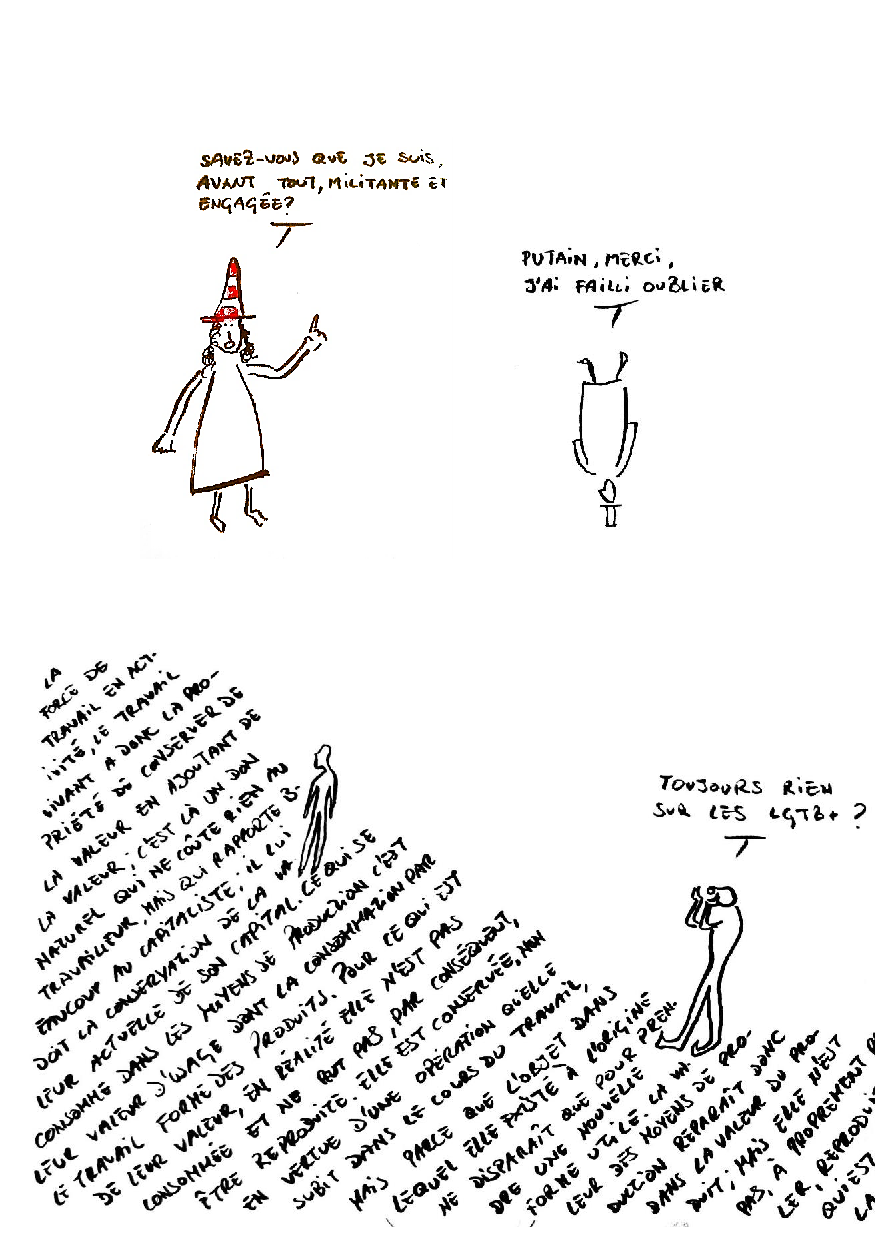 SAVEZ-VOUS QUE JE SUIS,
AVANT TOUT, MILITANTE ET
ENGAGÉE?
PUTAIN, MERCI,
J'AI FAILLI OUBLIER
LA
FORCE DE
TRAVAIL EN ACT-
IVITÉ, LE TRAVAIL
VIVANT A DONC LA PRO-
PRIÉTÉ DE CONSERVER DE
LA VALEUR EN AJOUTANT DE
LA VALEUR; C'EST LÀ UN DON
NATUREL QUI NE COÛTE RIEN AU
TRAVAILLEUR, MAIS QUI RAPPORTE B-
EAUCOUP AU CAPITALISTE; IL LUI
DOIT LA CONSERVATION DE LA VA
LEUR ACTUELLE DE SON CAPITAL. CE QUI SE
CONSOMME DANS LES MOYENS DE PRODUCTION C'EST
LEUR VALEUR D'USAGE DONT LA CONSOMMATION PAR
LE TRAVAIL FORME DES PRODUITS. POUR CE QUI EST
DE LEUR VALEUR, EN RÉALITÉ ELLE N'EST PAS
CONSOMMÉE ET NE PEUT PAS, PAR CONSÉQUENT,
ÊTRE REPRODUITE. ELLE EST CONSERVÉE, NON
EN VERTUE D'UNE OPÉRATION QU'ELLE
SUBIT DANS LE COURS DU TRAVAIL,
MAIS PARCE QUE L'OBJET DANS
LEQUEL ELLE EXISTE À L'ORIGINE
NE DISPARAÎT QUE POUR PREN-
DRE UNE NOUVELLE
FORME UTILE. LA VA-
LEUR DES MOYENS DE PRO-
DUCTION REPARAÎT DONC
DANS LA VALEUR DU PRO-
DUIT; MAIS ELLE N'EST
PAS, À PROPREMENT
LER, REPRODUI
QUI EST
LA
TOUJOURS RIEN
SUR LES LGTB+ ?